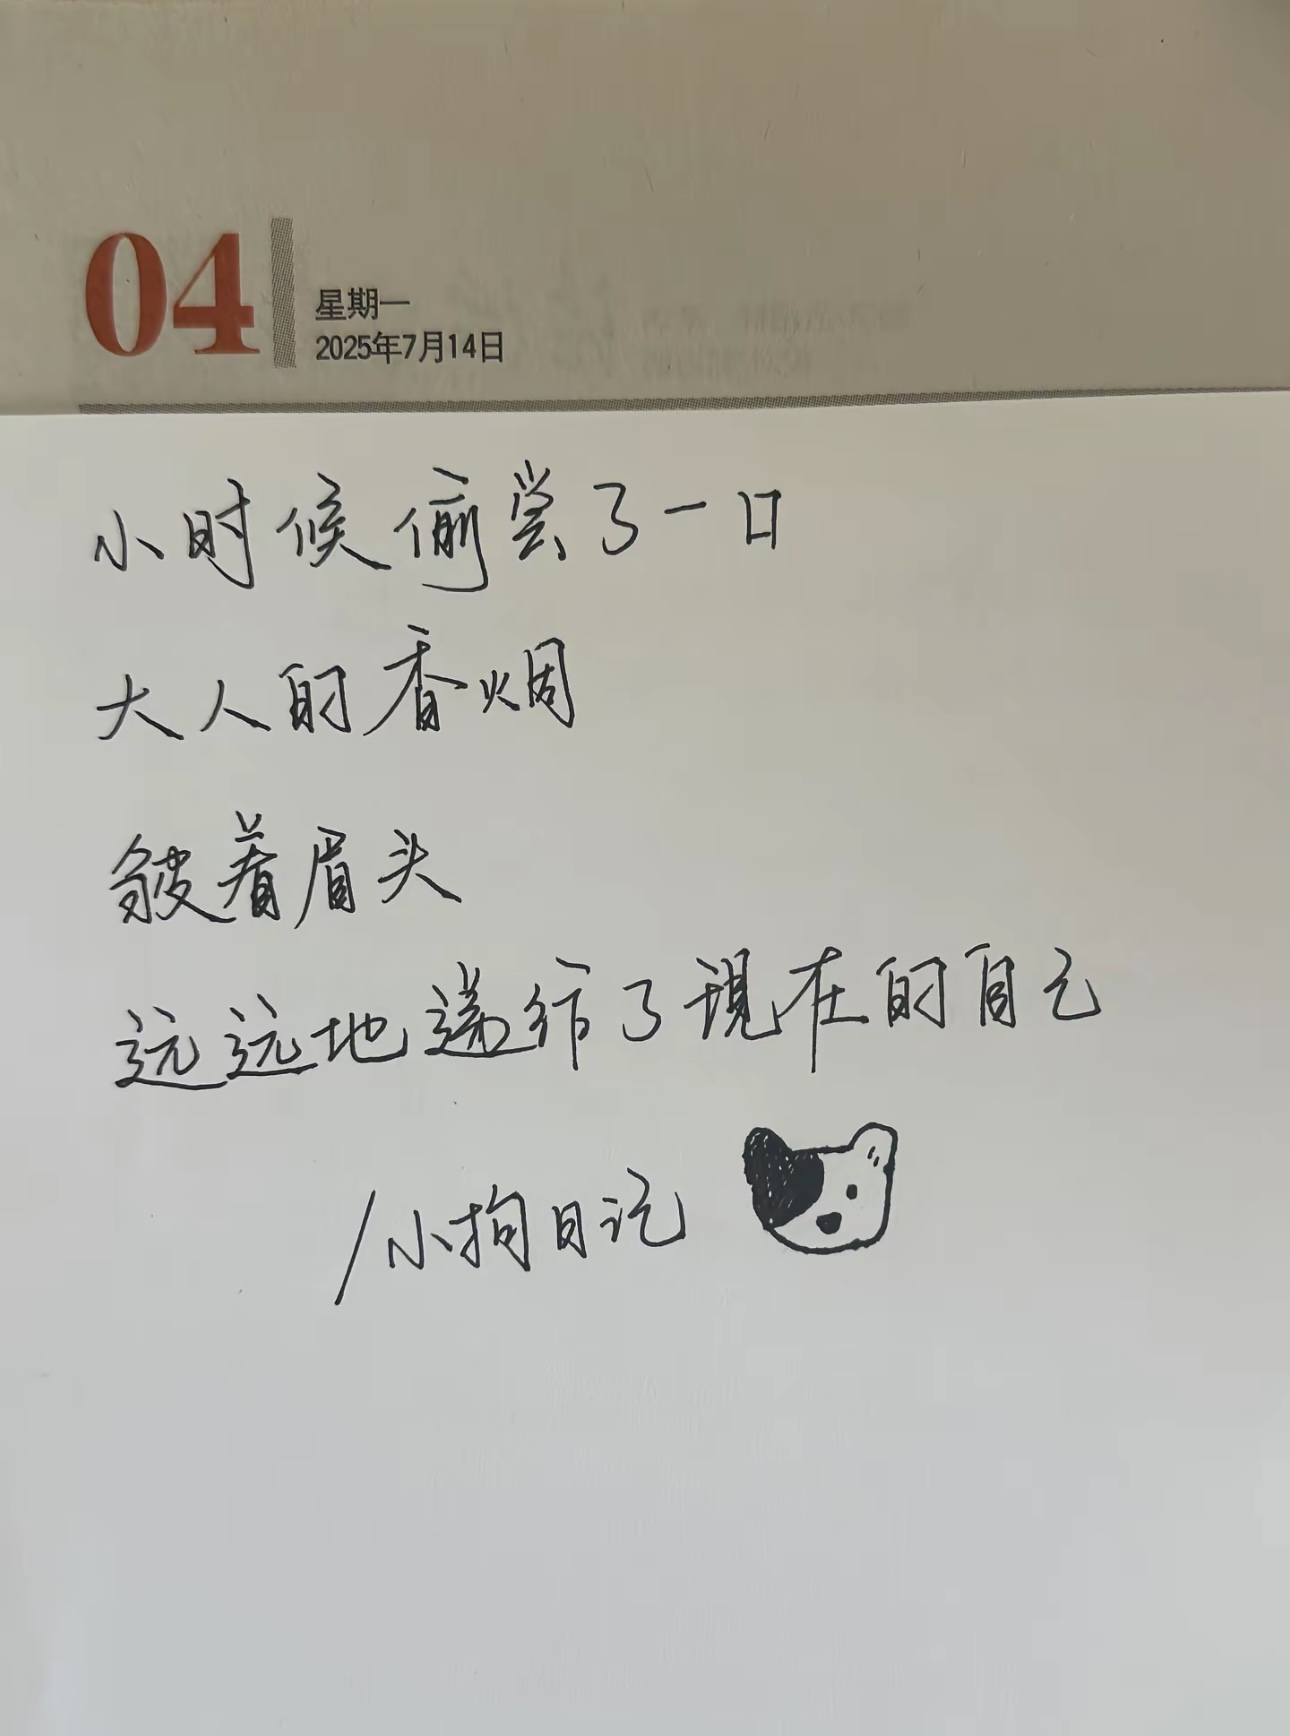 04
星期一
2025年7月14日
小时候偷尝了一口
大人的香烟
皱着眉头
远远地递给了现在的自己
/小狗日记